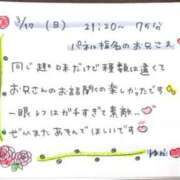 3/17 (日) 21:20〜 75分
パネル指名のお兄さま
同じ趣味だけど種類は違くて
お兄さんのお話聞くの楽しかったり
一眼レフはガチすぎて素敵〜
ぜひまたあそんでほしいです